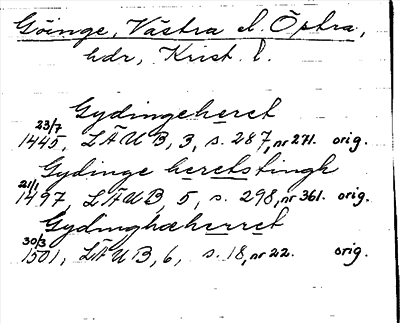 Göinge, Västra el. Östra,
hdr, Krist. l.
Gydingeheret
23/7 1445, LÄUB, 3, s. 287, nr 271. orig.
Gydinge heretstingh
21/1 1497, LÄUB, 5, s. 298, nr 361. orig.
Gydinghæherret
30/3 1501, LÄUB, 6, s. 18, nr 22. orig.